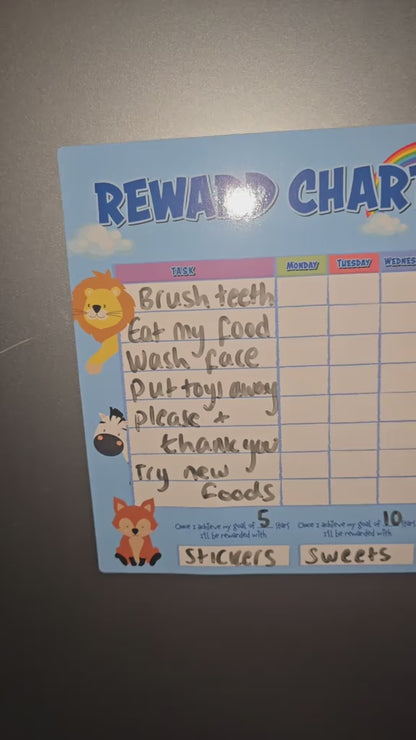 REWARD CHART
TASK MONDAY TUESDAY WEDNES
Brush teeth
Eat my food
Wash face
Put toys away
please +
thank you
Try new
foods
Once I achieve my goal of 5 stars Once I achieve my goal of 10 stars
I'll be rewarded with I'll be rewarded with
STICKERS SWEETS